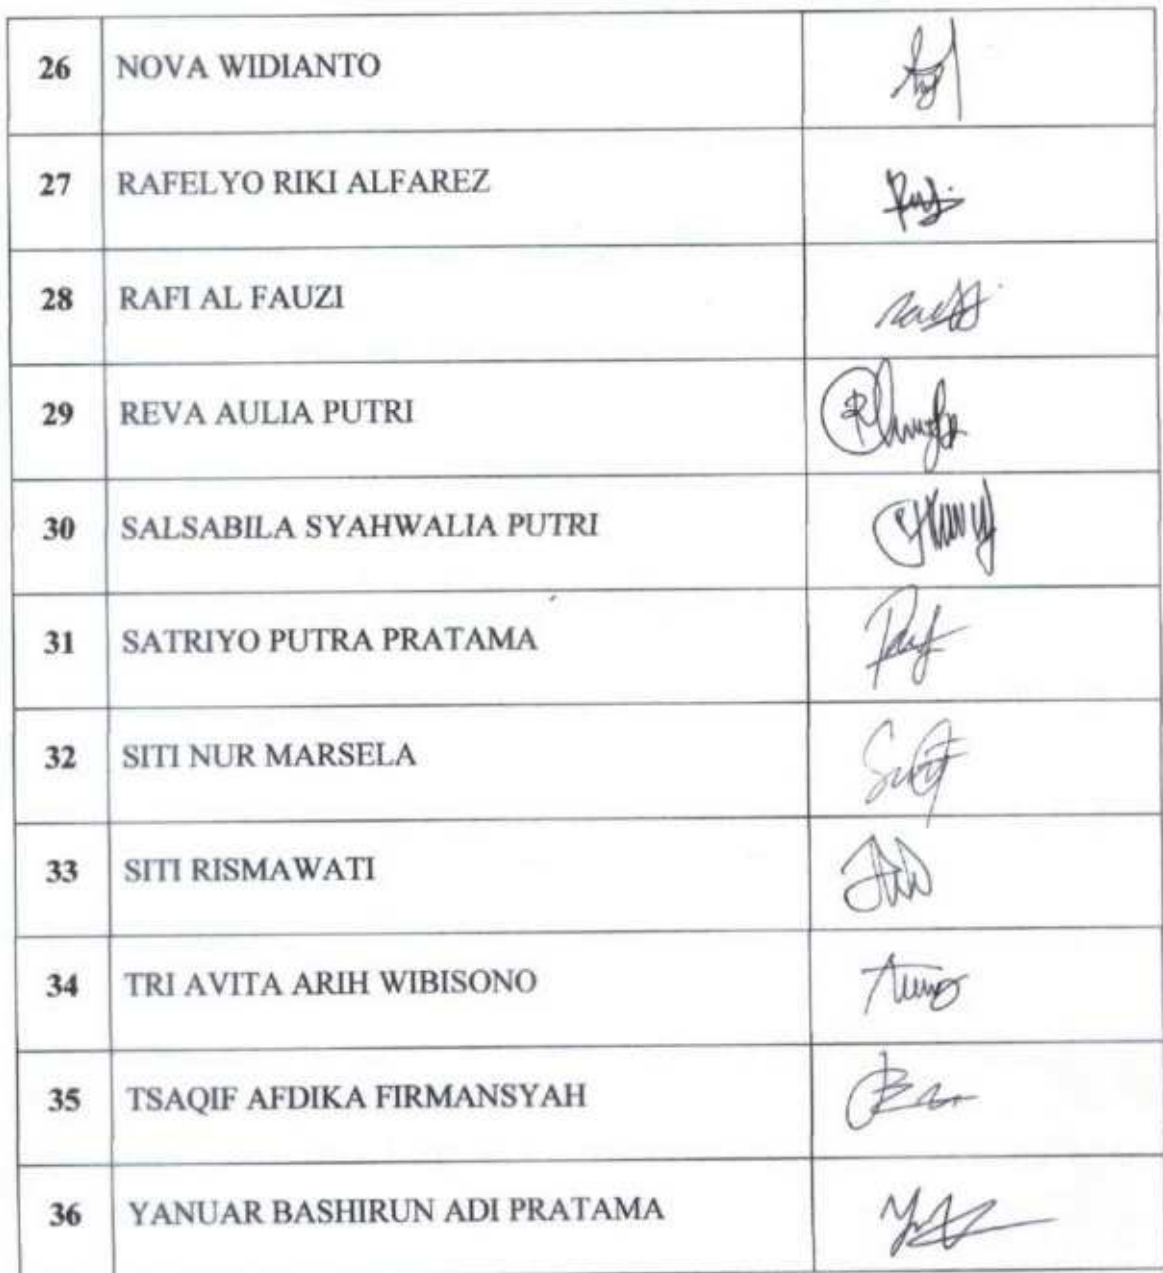 26 NOVA WIDIANTO
27 RAFELYO RIKI ALFAREZ
28 RAFI AL FAUZI
29 REVA AULIA PUTRI
30 SALSABILA SYAHWALIA PUTRI
31 SATRIYO PUTRA PRATAMA
32 SITI NUR MARSELA
33 SITI RISMAWATI
34 TRI AVITA ARIH WIBISONO
35 TSAQIF AFDIKA FIRMANSYAH
36 YANUAR BASHIRUN ADI PRATAMA